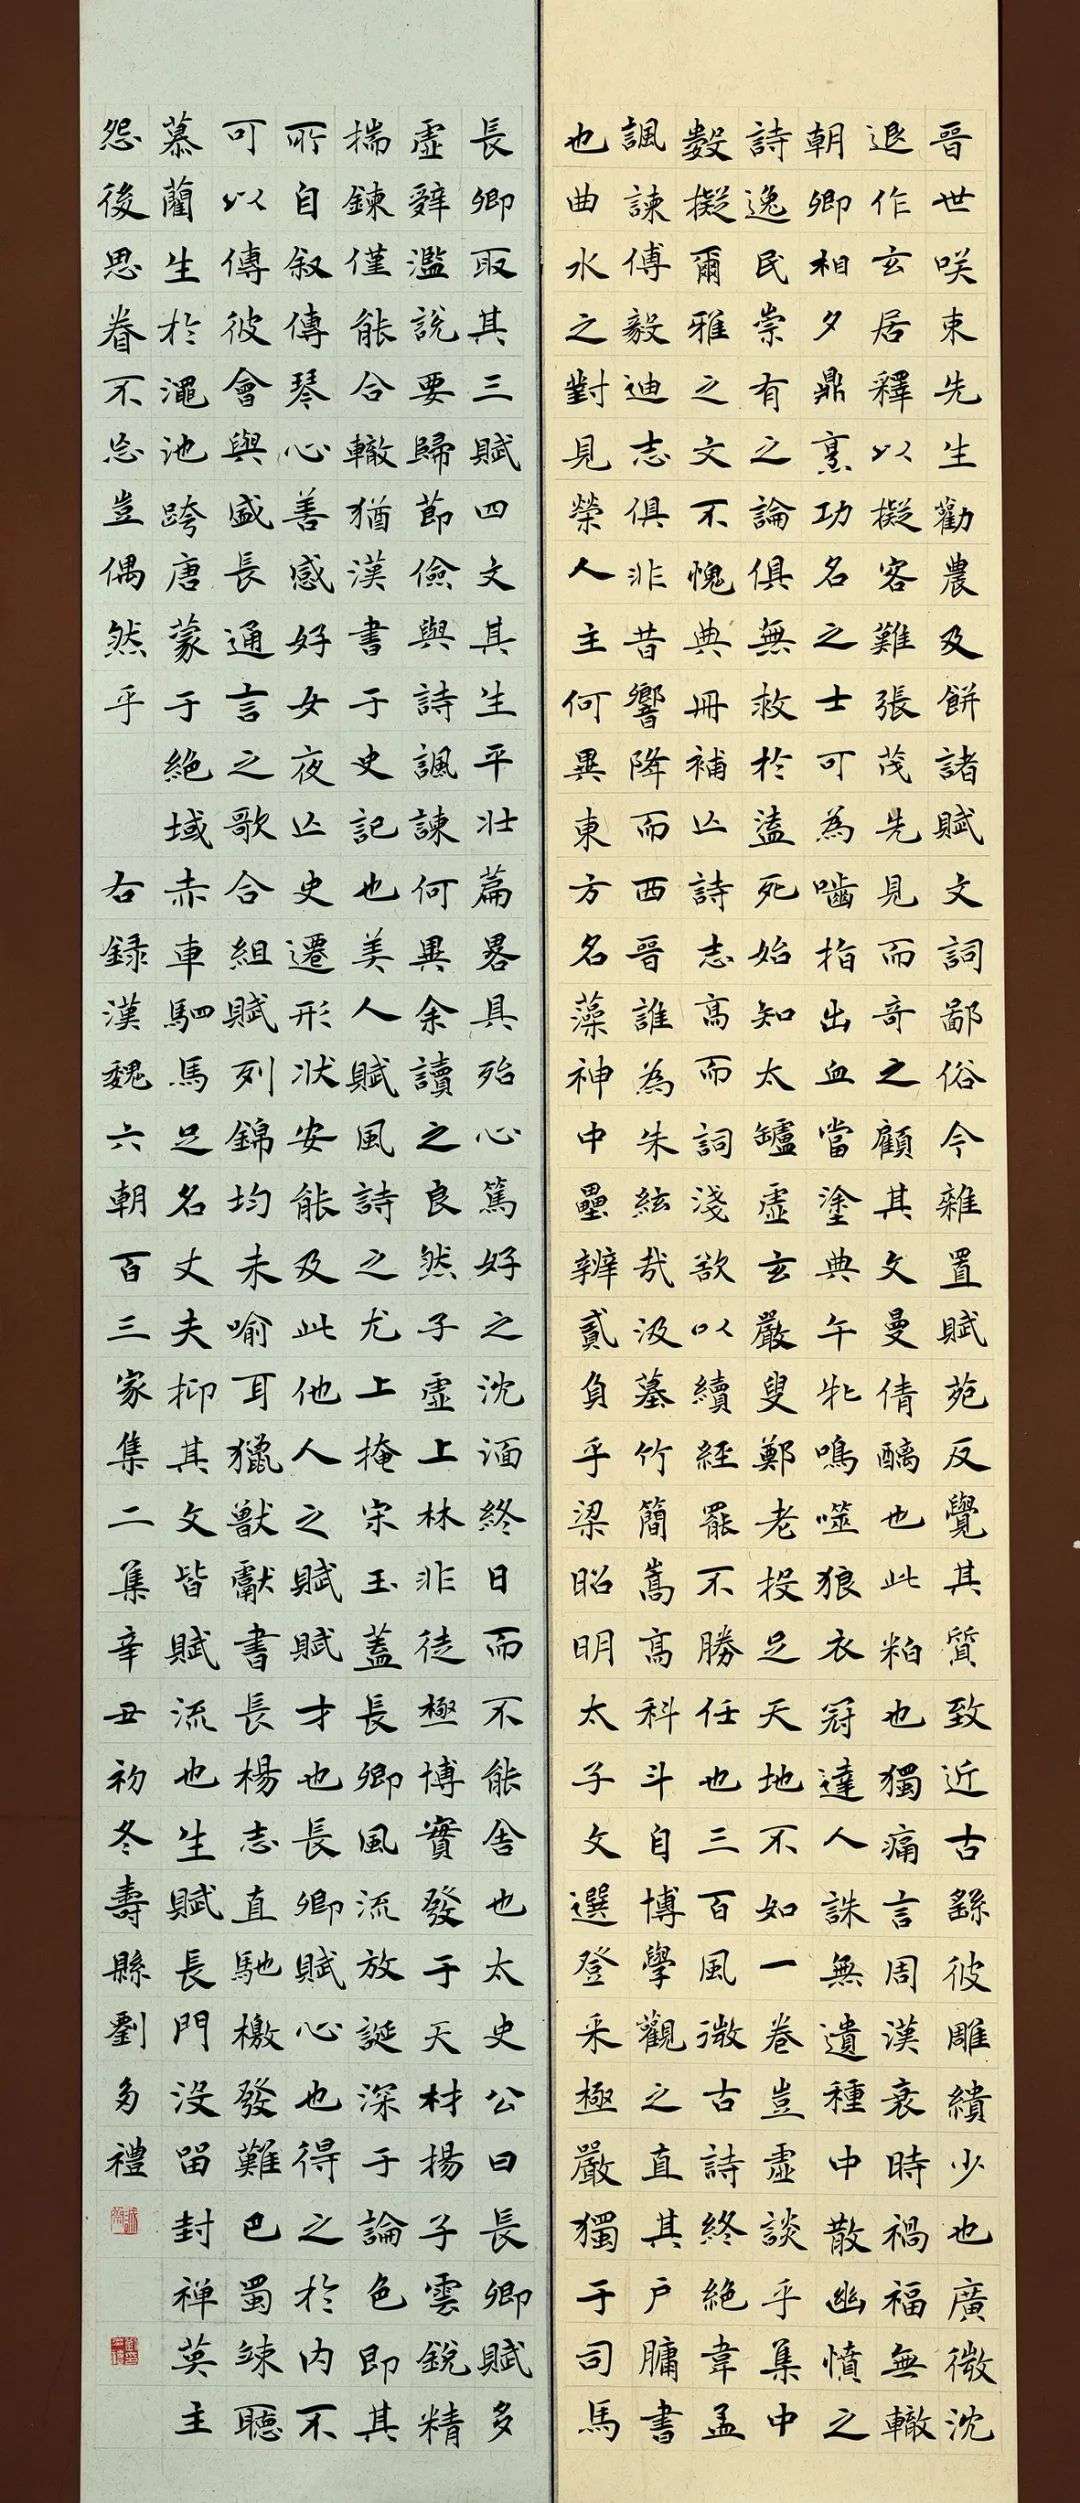 晉世咲束先生勸農及餅諸賦文詞鄙俗今雜置賦苑反覺其質致近古繇彼雕繢少也廣微沈
退作玄居釋以擬客難張茂先見而奇之顧其文曼倩醨也此粕也獨痛言周漢衰時禍福無轍
朝卿相夕鼎烹功名之士可為嚙指出血當塗典午牝鳴噬狼衣冠達人誅無遺種中散幽憤之
詩逸民崇有之論俱無救於溘死始知太罏虛玄嚴叟鄭老投足天地不如一卷豈虛談乎集中
數擬爾雅之文不愧典冊補亾詩志高而詞淺欲以續經罷不勝任也三百風微古詩終絕韋孟
諷諫傅毅迪志俱非昔響降而西晉誰為朱絃哉汲墓竹簡嵩高科斗自博學觀之直其戶牖書
也曲水之對見榮人主何異東方名藻神中壘辨貳負乎梁昭明太子文選登采極嚴獨于司馬
長卿取其三賦四文其生平壯篇畧具殆心篤好之沈湎終日而不能舍也太史公曰長卿賦多
虛辭濫說要歸節儉與詩諷諫何異余讀之良然子虛上林非徒極博實發于天材揚子雲銳精
揣鍊僅能合轍猶漢書于史記也美人賦風詩之尤上掩宋玉蓋長卿風流放誕深于論色即其
所自叙傳琴心善感好女夜亾史遷形狀安能及此他人之賦賦才也長卿賦心也得之於內不
可以傳彼會與盛長通言之歌合組賦列錦均未喻耳獵獸獻書長楊志直馳檄發難巴蜀竦聽
慕藺生於澠池跨唐蒙于絕域赤車駟馬足名丈夫抑其文皆賦流也生賦長門沒留封禪英主
怨後思眷不忘豈偶然乎 右録漢魏六朝百三家集二集辛丑初冬壽縣劉多禮